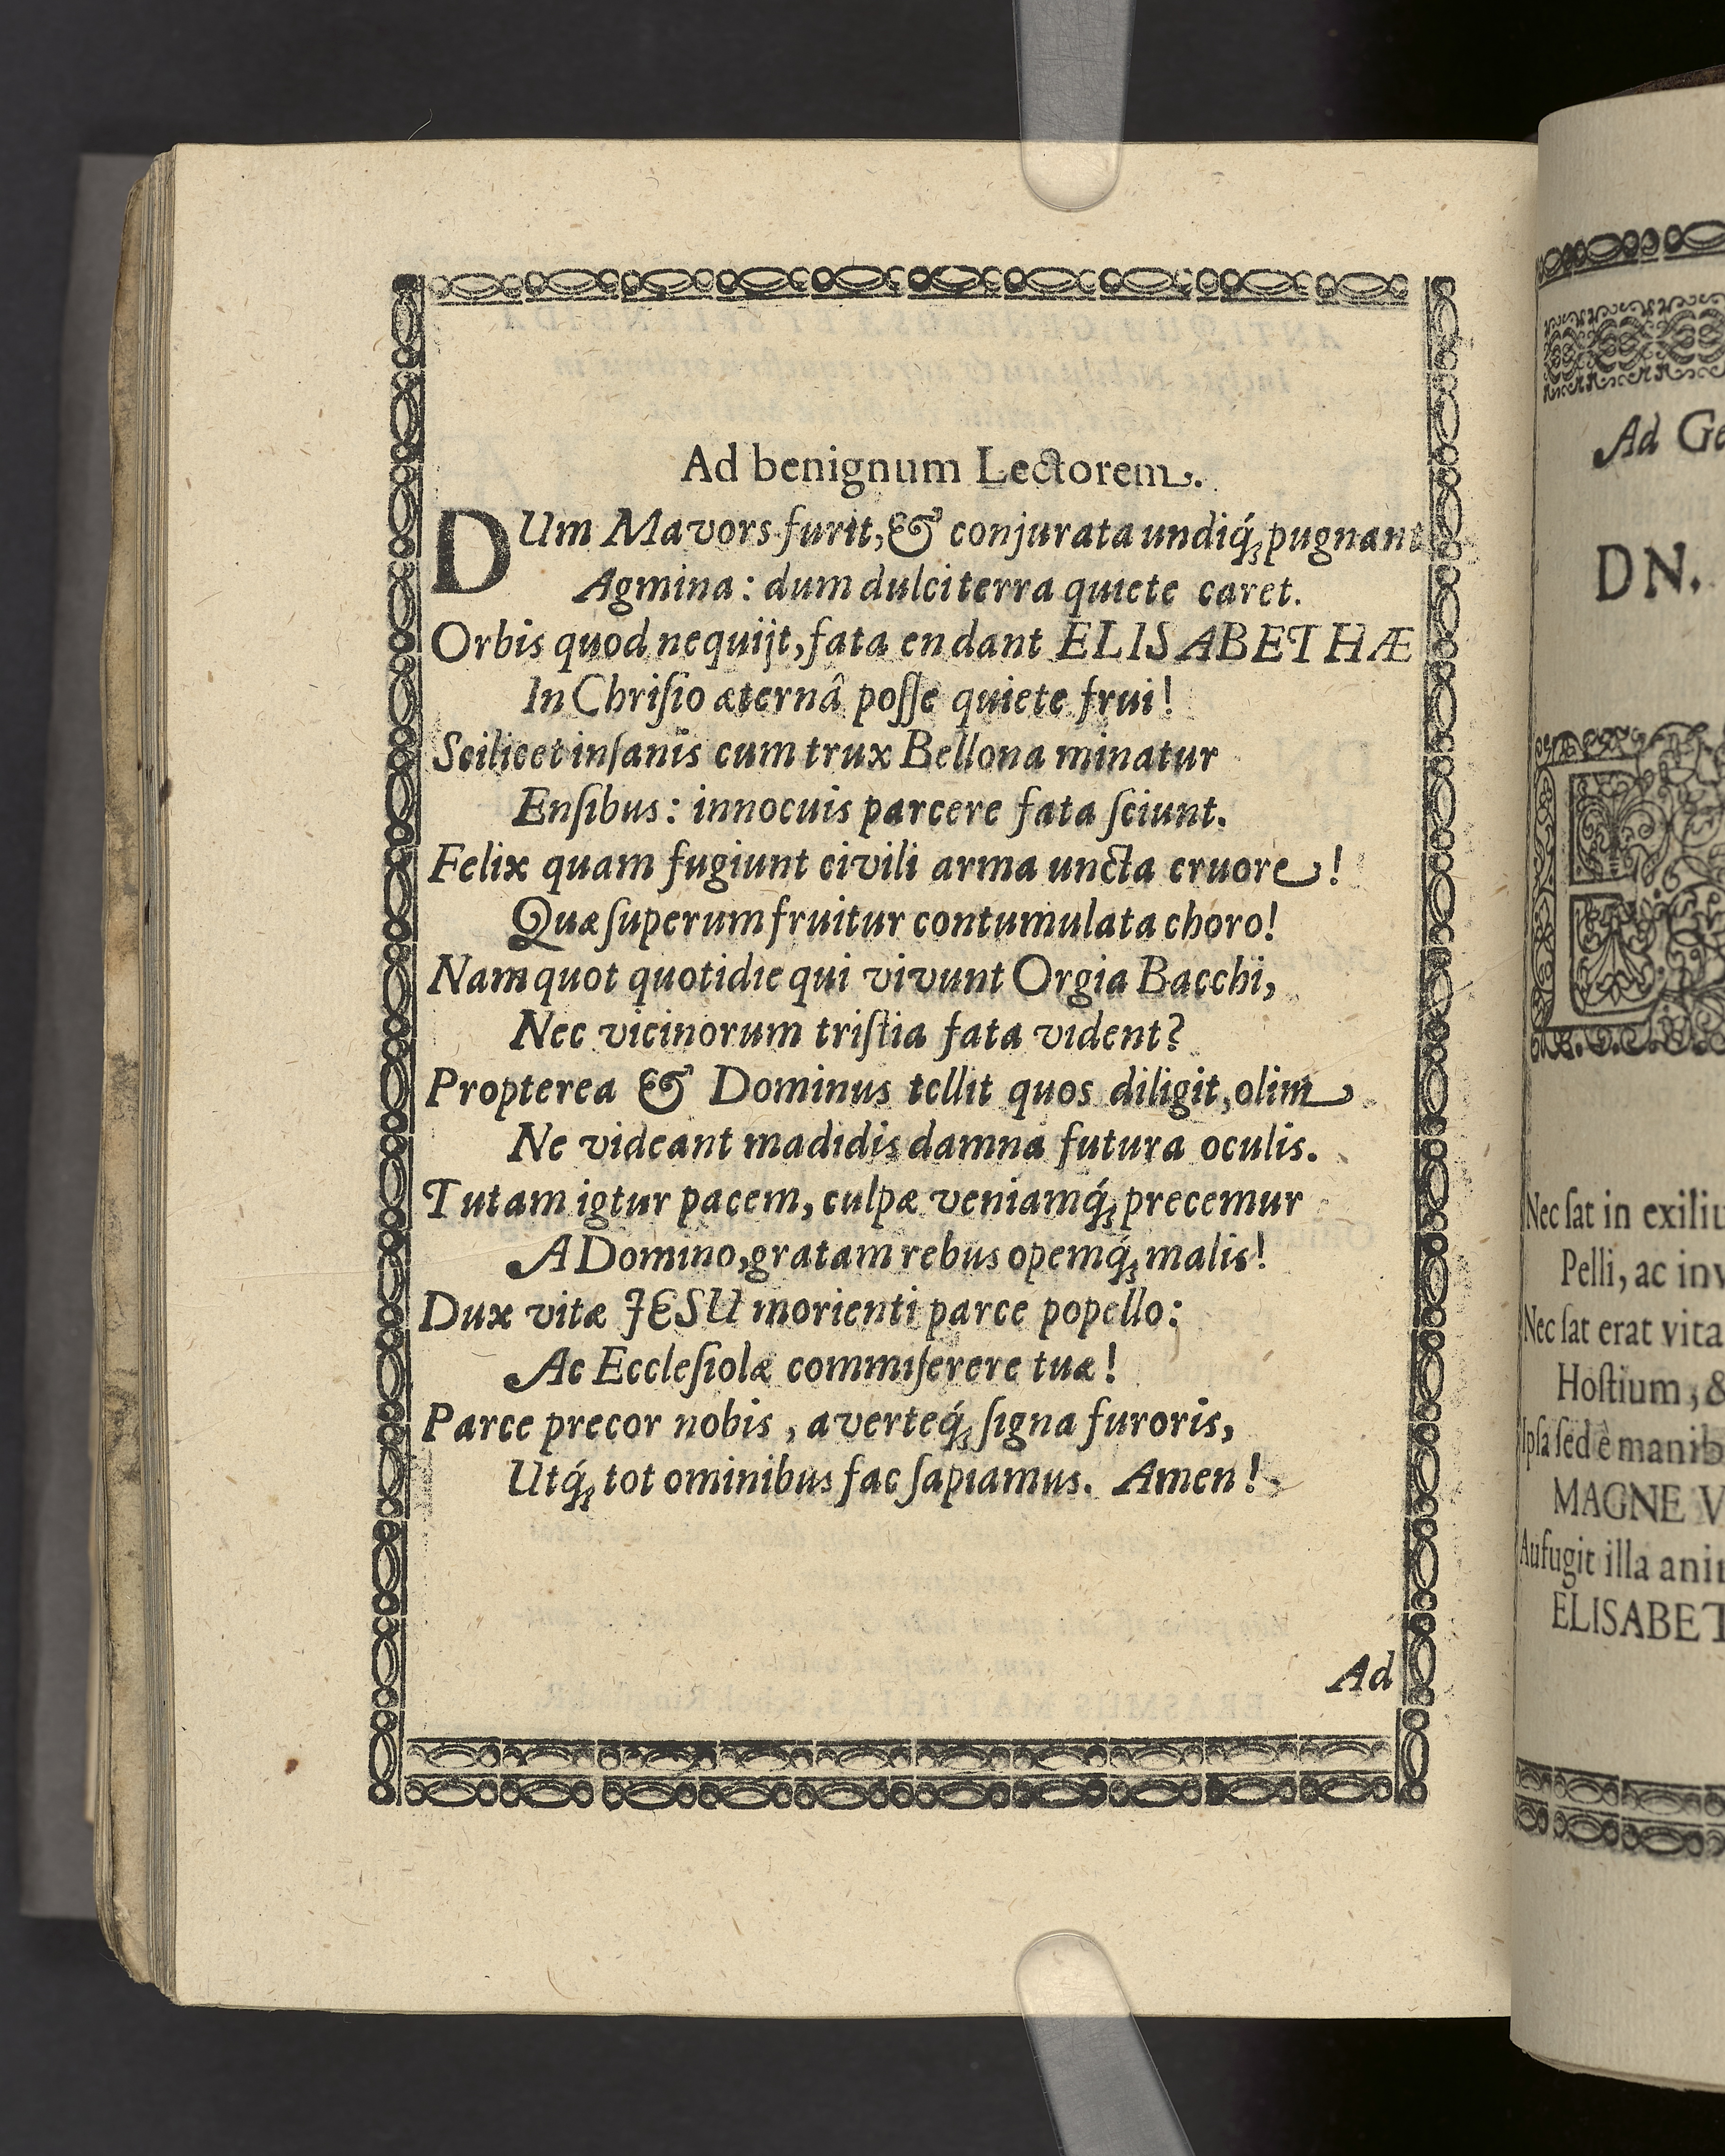 Ad benignum Lectorem.
DUm Mavors furit, & conjurata undiq́; pugnant
Agmina: dum dulci terra quiete caret.
Orbis quod nequijt, fata en dant ELISABETHÆ
In Chriſto æternâ poſſe quiete frui!
Scilicet inſanis cum trux Bellona minatur
Enſibus: innocuis parcere fata ſciunt.
Felix quam fugiunt civili arma uncta cruore!
Quæ ſuperum fruitur contumulata choro!
Nam quot quotidie qui vivunt Orgia Bacchi,
Nec vicinorum triſtia fata vident?
Propterea & Dominus tollit quos diligit, olim
Ne videant madidis damna futura oculis.
Tutam igtur pacem, culpæ veniamq́; precemur
A Domino, gratam rebus opemq́; malis!
Dux vitæ JESU morienti parce popello:
Ac Eccleſiolæ commiſerere tuæ!
Parce precor nobis, averteq́; ſigna furoris,
Utq́; tot ominibus fac ſapiamus. Amen!
Ad
Ad Ge
DN.
Nec ſat in exiliu
Pelli, ac inv
Nec ſat erat vita
Hoſtium, &
Ipſa ſed è manib
MAGNE V
Aufugit illa ani
ELISABET